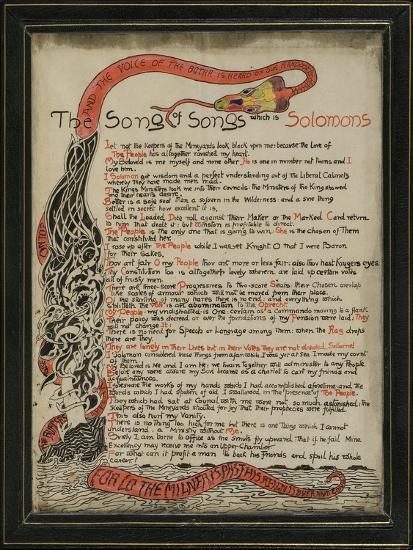 AND THE VOICE OF THE BOTHA IS HEARD BY OUR
The Song of Songs which is Solomons
Let not the Keepers of the Mineyards look black upon me: because the Love of
The People has altogether ravished my heart.
My Beloved is me myself and none other. He is one in number not twins and I
love him.
I Solomon get wisdom and a perfect understanding out of the Liberal Cabinets
whereby they have made men mad.
The Kings Ministers took me into their councils: the Ministers of the King showed
me their secrets
Better is a safe seat than a sojourn in the Wilderness: and a sure thing
settled in secret how excellent it is.
Shall the Loaded Dice roll against their Maker or the Marked Card return
to him that dealt it: but is profitable to direct.
The People is the only one that is going to win. She is the Chosen of Them
that constituted her
I rose up after The People while I was yet Knight O that I were Baron
for their sakes,
Thou art fair O my People thou art more or less fair: also thou hast foggers eyes
Thy Constitution too is altogether lovely wherein are laid up certain votes
all of trusty men.
There are three score Progressives to two score Seats: their Chosen overlap
the scales of armour which will not be moved from their place.
Of the slating of many hares there is no end: and everything which
Shibboleth the Volk is an abomination to the Oprecht.
My People was unabashed: is One: certain as a commando moving to a flank
Their policy was decreed or ever the foundations of my Persian were laid: They
will not change it.
There is no need for Speech or Language among them: when the Rag drops
there are They.
They are lonely in their Lives but in their Votes They are not divided. Sullorme!
I Solomon considered these things from afar: wish I was yer at Sea I made my covert
of them.
My Beloved is Me and I am he: we have together and administer to any People
Before any were aware my Soul became as a chariot to cart my friends and
acquaintances.
I observed the works of my hands which I had accomplished aforetime and the
words which I had spoken of old. I swallowed in the presence of The People.
They which had sat at Council with me were not so much astonished: the
Keepers of the Mineyards shouted for joy that their prophecies were fulfilled
This also hurt my vanity.
There is no thing too high for me but there is one thing which I cannot
understand: a Ministry without Me.
Surely I am born to Office as the Smuts fly upward that if he fail Mine
Excellency may receive me into an Upper Chamber.
For what can it profit a man to back his Friends and spoil his whole
career?
FOR LO THE MILNER IS PAST HIS REIGN IS OVER AND